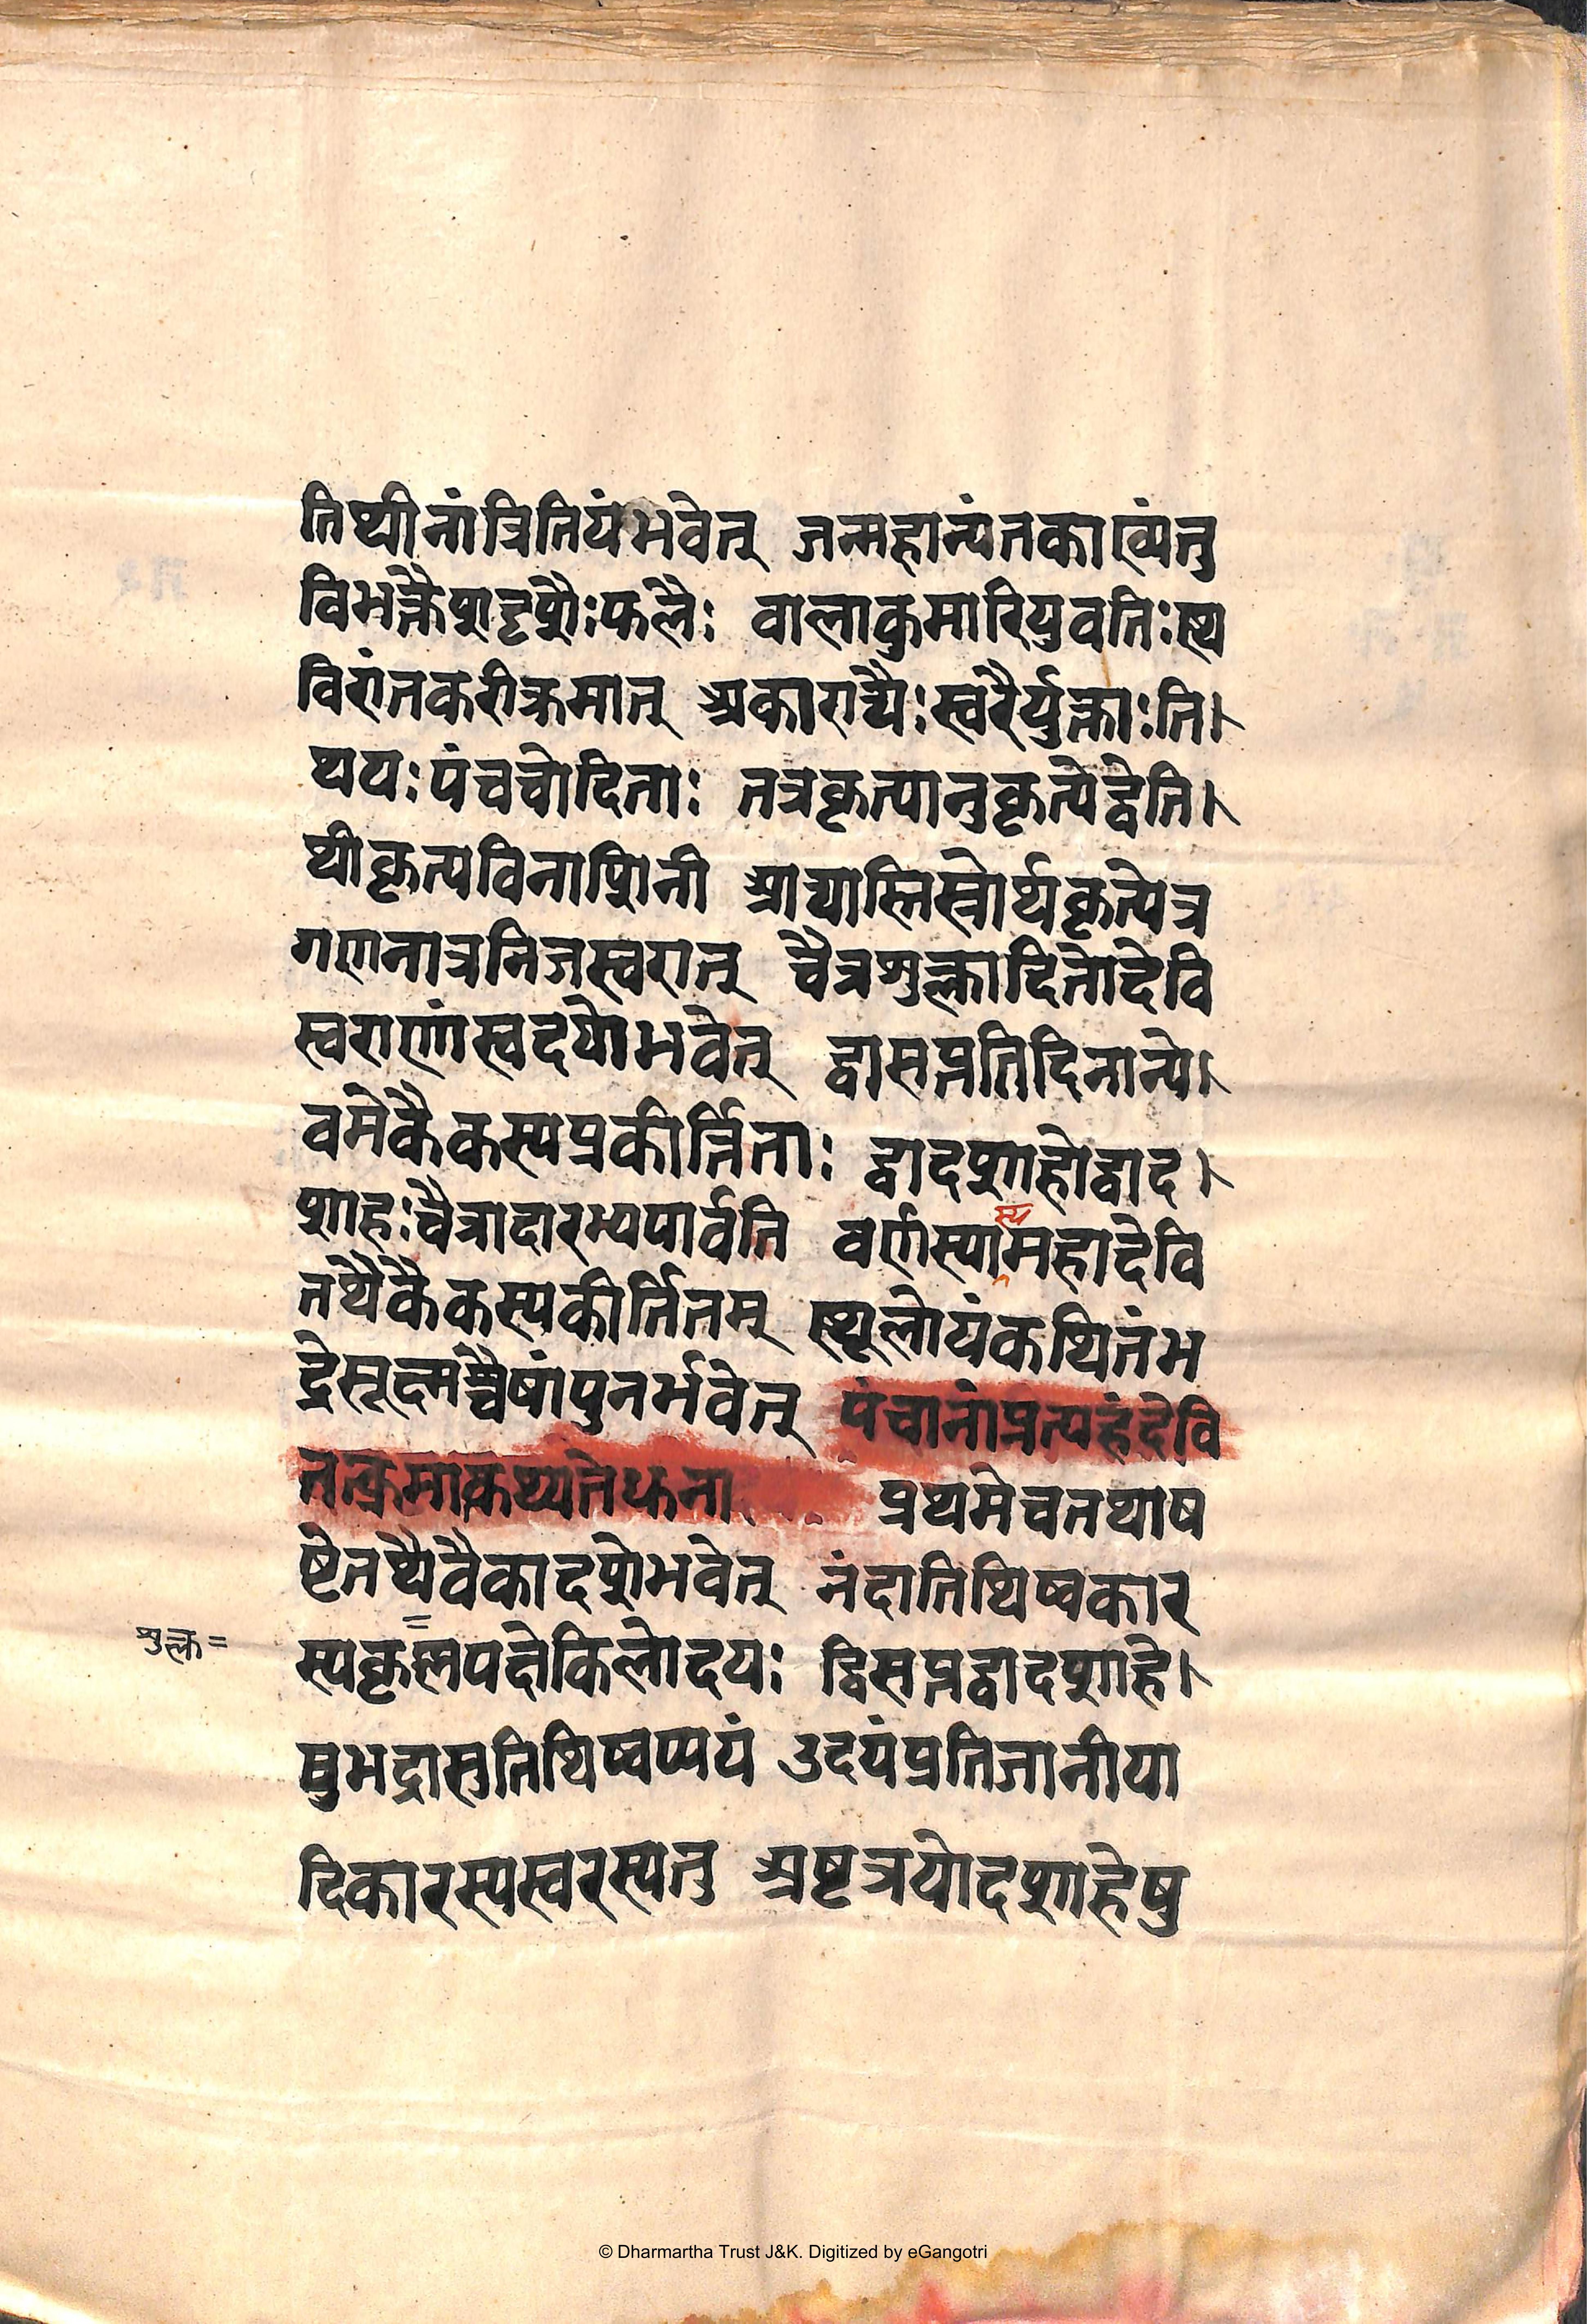 तिथीनांत्रितियंभवेत् जन्महान्यंतकाख्यंतु
विभक्तैशदृशैःफलैः वालाकुमारियुवतिःस्थ
विरांतकरीक्रमात् अकाराद्यैःस्वरैर्युक्ताःति।
थयःपंचचोदिताः तत्रकृत्यानुकृत्येद्वेति।
थीकृत्यविनाशिनी आद्यास्तिस्रोर्थकृत्येत्र
गणनात्रनिजस्वरात् चैत्रशुक्लादितोदेवि
स्वराणांस्वदयोभवेत् द्वासप्ततिदिनान्ये।
वमेकैकस्यप्रकीर्त्तिताः द्वादशाहोद्वाद।
शाहःचैत्रादारभ्यपार्वति वर्णस्यास्यमहादेवि
तथैकैकस्यकीर्तितम् स्थूलोयंकथितंभ
द्रेसूक्ष्मश्चैषांपुनर्भवेत् पंचानांप्रत्यहंदेवि
तत्क्रमाकथ्यतेधना प्रथमेचतथाष
ष्टेतथैवैकादशेभवेत् नंदातिथिष्वकार
शुक्ल=
स्यकृष्णपक्षेकिलोदयः द्विसप्तद्वादशाहे।
षुभद्रासुतिथिष्वप्ययं उदयंप्रतिजानीया
दिकारस्यस्वरस्यतु अष्टत्रयोदशाहेषु
© Dharmartha Trust J&K. Digitized by eGangotri